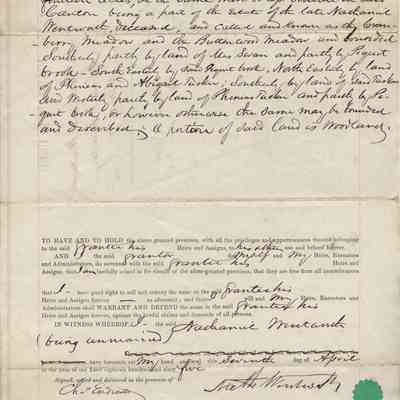 Canton being a part of the estate of the late Nathaniel
Wentworth, deceased, and called and known as the Cran-
berry Meadow and the Buttonwood Meadow and bounded
Southerly partly by land of Swan and partly by Pequit
brook - South Easterly by said Pequit brook, North Easterly by land
of Phineas and Abigail Tucker, Northerly by land of said Tucker
and Westerly partly by land of Phineas Tucker and partly by Pe-
quit brook, or however otherwise the same may be bounded
and described; A portion of said land is Woodland.
TO HAVE AND TO HOLD the above-granted premises, with all the privileges and appurtenances thereto belonging
to the said grantee his Heirs and Assigns, to his & their use and behoof forever.
AND I the said grantor for myself and my Heirs, Executors
and Administrators, do covenant with the said grantee his Heirs and
Assigns, that I am lawfully seized in fee simple of the afore-granted premises, that they are free from all incumbrances
that I have good right to sell and convey the same to the said grantee his
Heirs and Assigns forever as aforesaid; and that I will and my Heirs, Executors and
Administrators shall WARRANT AND DEFEND the same to the said grantee his
Heirs and Assigns forever, against the lawful claims and demands of all persons.
IN WITNESS WHEREOF, I the said Nathaniel Wentworth
(being unmarried)
have hereunto set my hand and seal this Seventh day of April
in the year of our Lord eighteen hundred and sixty five
Signed, sealed and delivered in the presence of
Chs. Endicott
Nath Wentworth